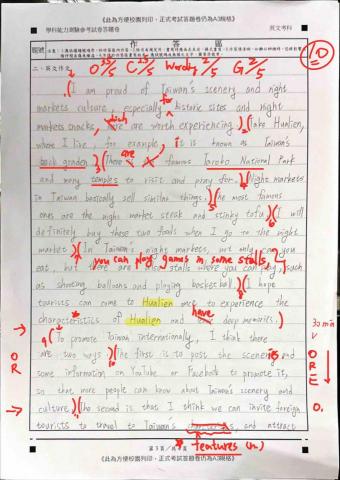 《此為方便校園列印，正式考試答題卷仍為A3規格》
學科能力測驗參考試卷答題卷
英文考科
作答區
10
二、英文作文
O 3.5/5 C 2.5/5 Wording 2/5 G 2/5
I am proud of Taiwan's scenery and night
for
markets culture, especially historic sites and night
which
markets snacks, are worth experiencing. Take Hualien,
where I live, for example, it is known as Taiwan's
back garden. There are famous Taroko National Park
are
and many temples to visit and pray for. Night markets
in Taiwan basically sell similar things. The most famous
ones are the night market steak and stinky tofu. I will
definitely buy these two foods when I go to the night
market. In Taiwan's night markets, not only can you
you can play games in some stalls,
eat, but there are stalls where you can play, such
as shooting balloons and playing basketball. I hope
tourists can come to Hualien to experience the
have
characteristics of Hualien and deep memories.
To promote Taiwan internationally, I think there
30 min
are two ways. The first is to post the scenery and
some information on YouTube or Facebook to promote it,
so that more people can know about Taiwan's scenery and
culture. The second is that I think we can invite foreign
tourists to travel to Taiwan's and attract
O
R
E
O
R
* features (n.)
第3頁/共4頁
《此為方便校園列印，正式考試答題卷仍為A3規格》